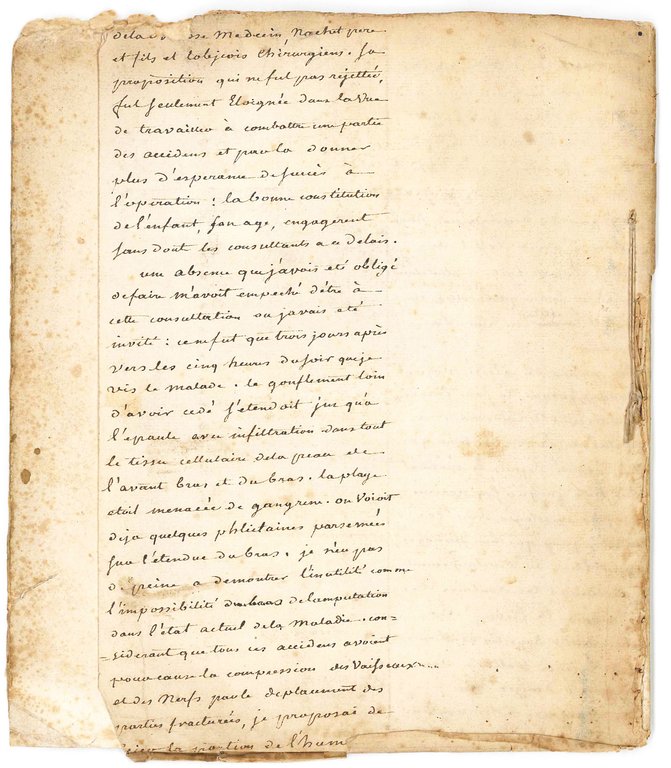 Medecin, Nachet pere
et fils et Lobjeois Chirurgiens. Sa
proposition qui ne fut pas rejettée,
fut seulement Eloignée dans la vue
de travailler à combattre une partie
des accidens et par la donner
plus d'esperance de succès à
l'operation : la bonne constitution
de l'enfant, son age, engagerent
sans dout les consultants a ce delais.
une absence que j'avois eté obligé
de faire m'avoit empeché d'être à
cette consultation ou javais eté
invité : ce ne fut que trois jours après
vers les cinq heures du soir que je
vis le malade. le gonflement loin
d'avoir cedé s'etendoit jus qu'a
l'epaule avec infiltration dans tout
le tissu cellulaire de la peau de
l'avant bras et du bras. la playe
etoit menacée de gangrene. on voioit
deja quelques phlictaines parsemées
sur l'étendue du bras. je n'eu pas
de peine a demontrer l'inutilité comme
l'impossibilité de l'amputation
dans l'état actuel de la maladie. con-
=siderant que tous ces accidens avoient
pour cause la compression des Vaisseaux
et des Nerfs par le deplacement des
parties fracturées, je proposai de
scier la portion de l'hum